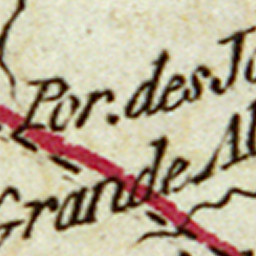 Por. des
Grande